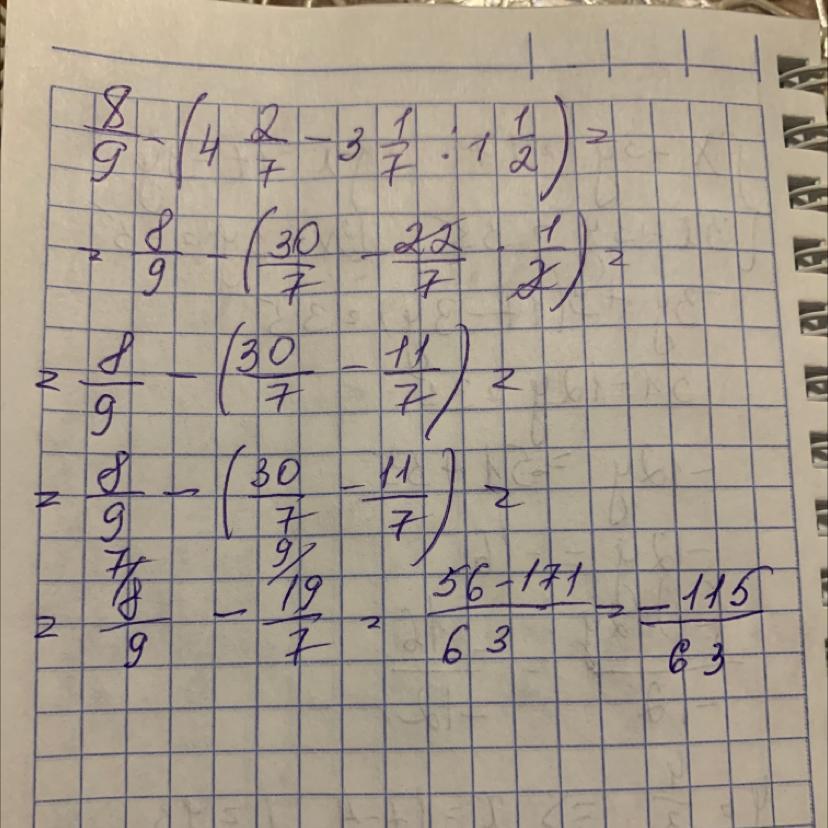 8/9 - (4 2/7 - 3 1/7 : 1 1/2) =
= 8/9 - (30/7 - 22/7 · 1/2) =
= 8/9 - (30/7 - 11/7) =
= 8/9 - (30/7 - 11/7) =
7/ 9/
= 8/9 - 19/7 = 56-171/63 = -115/63